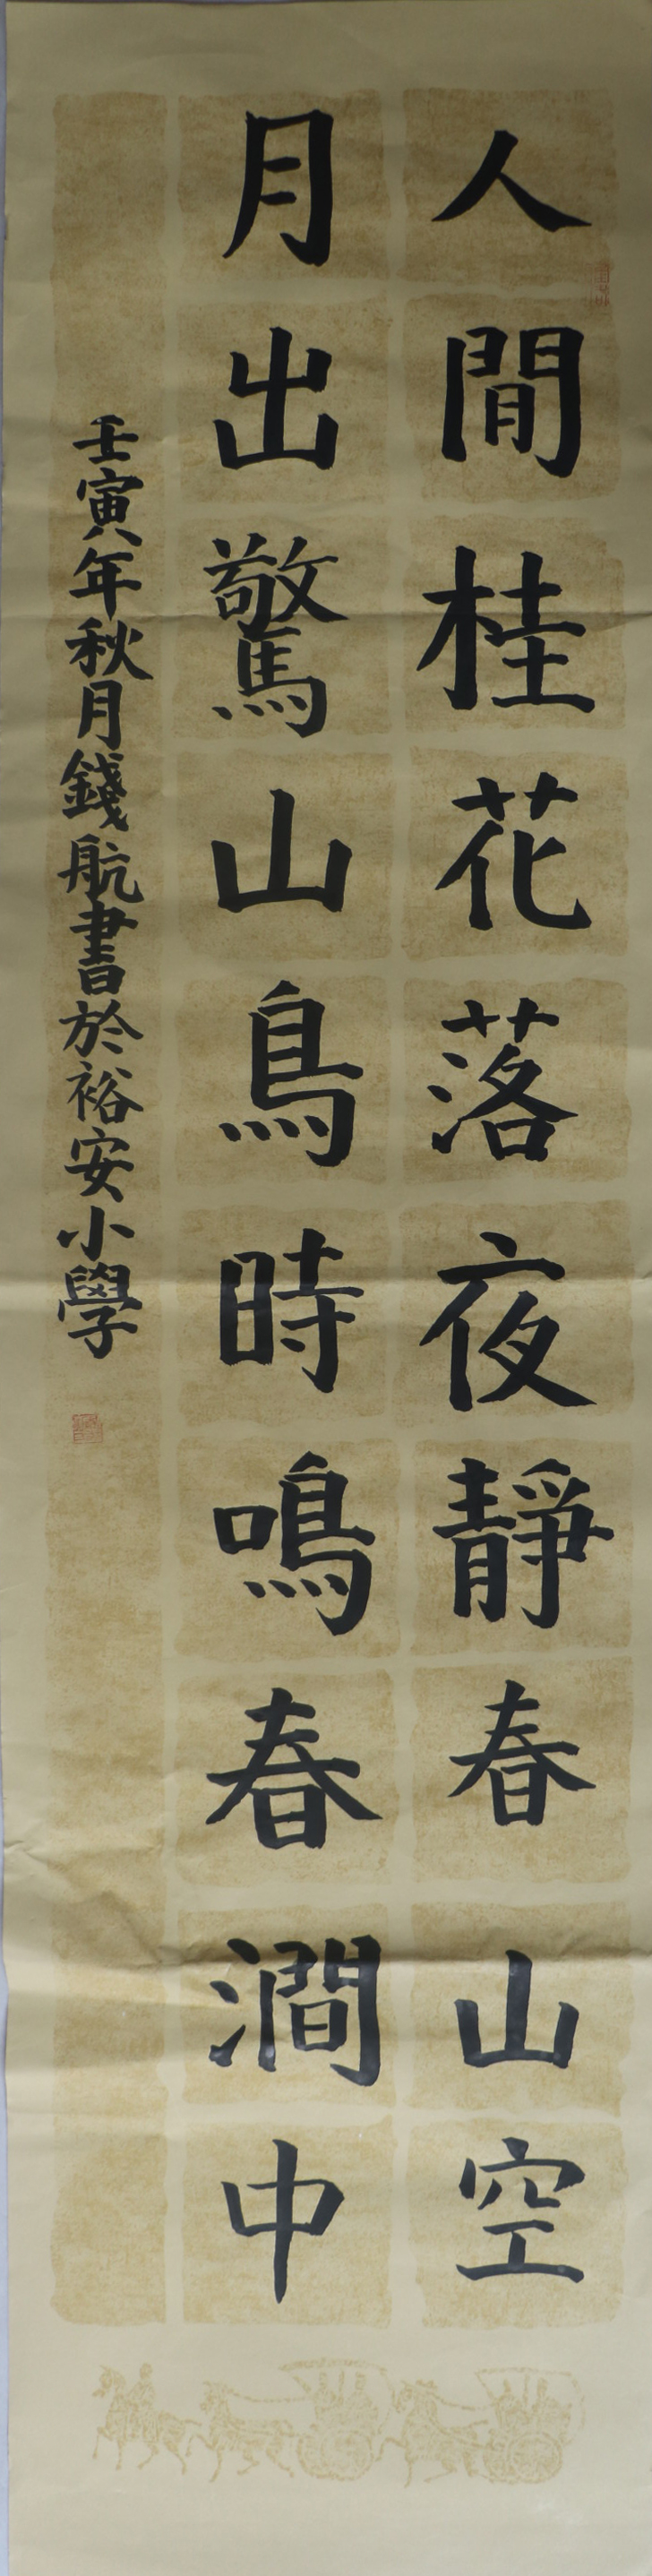 人間桂花落夜靜春山空
月出驚山鳥時鳴春澗中
壬寅年秋月錢航書於裕安小學